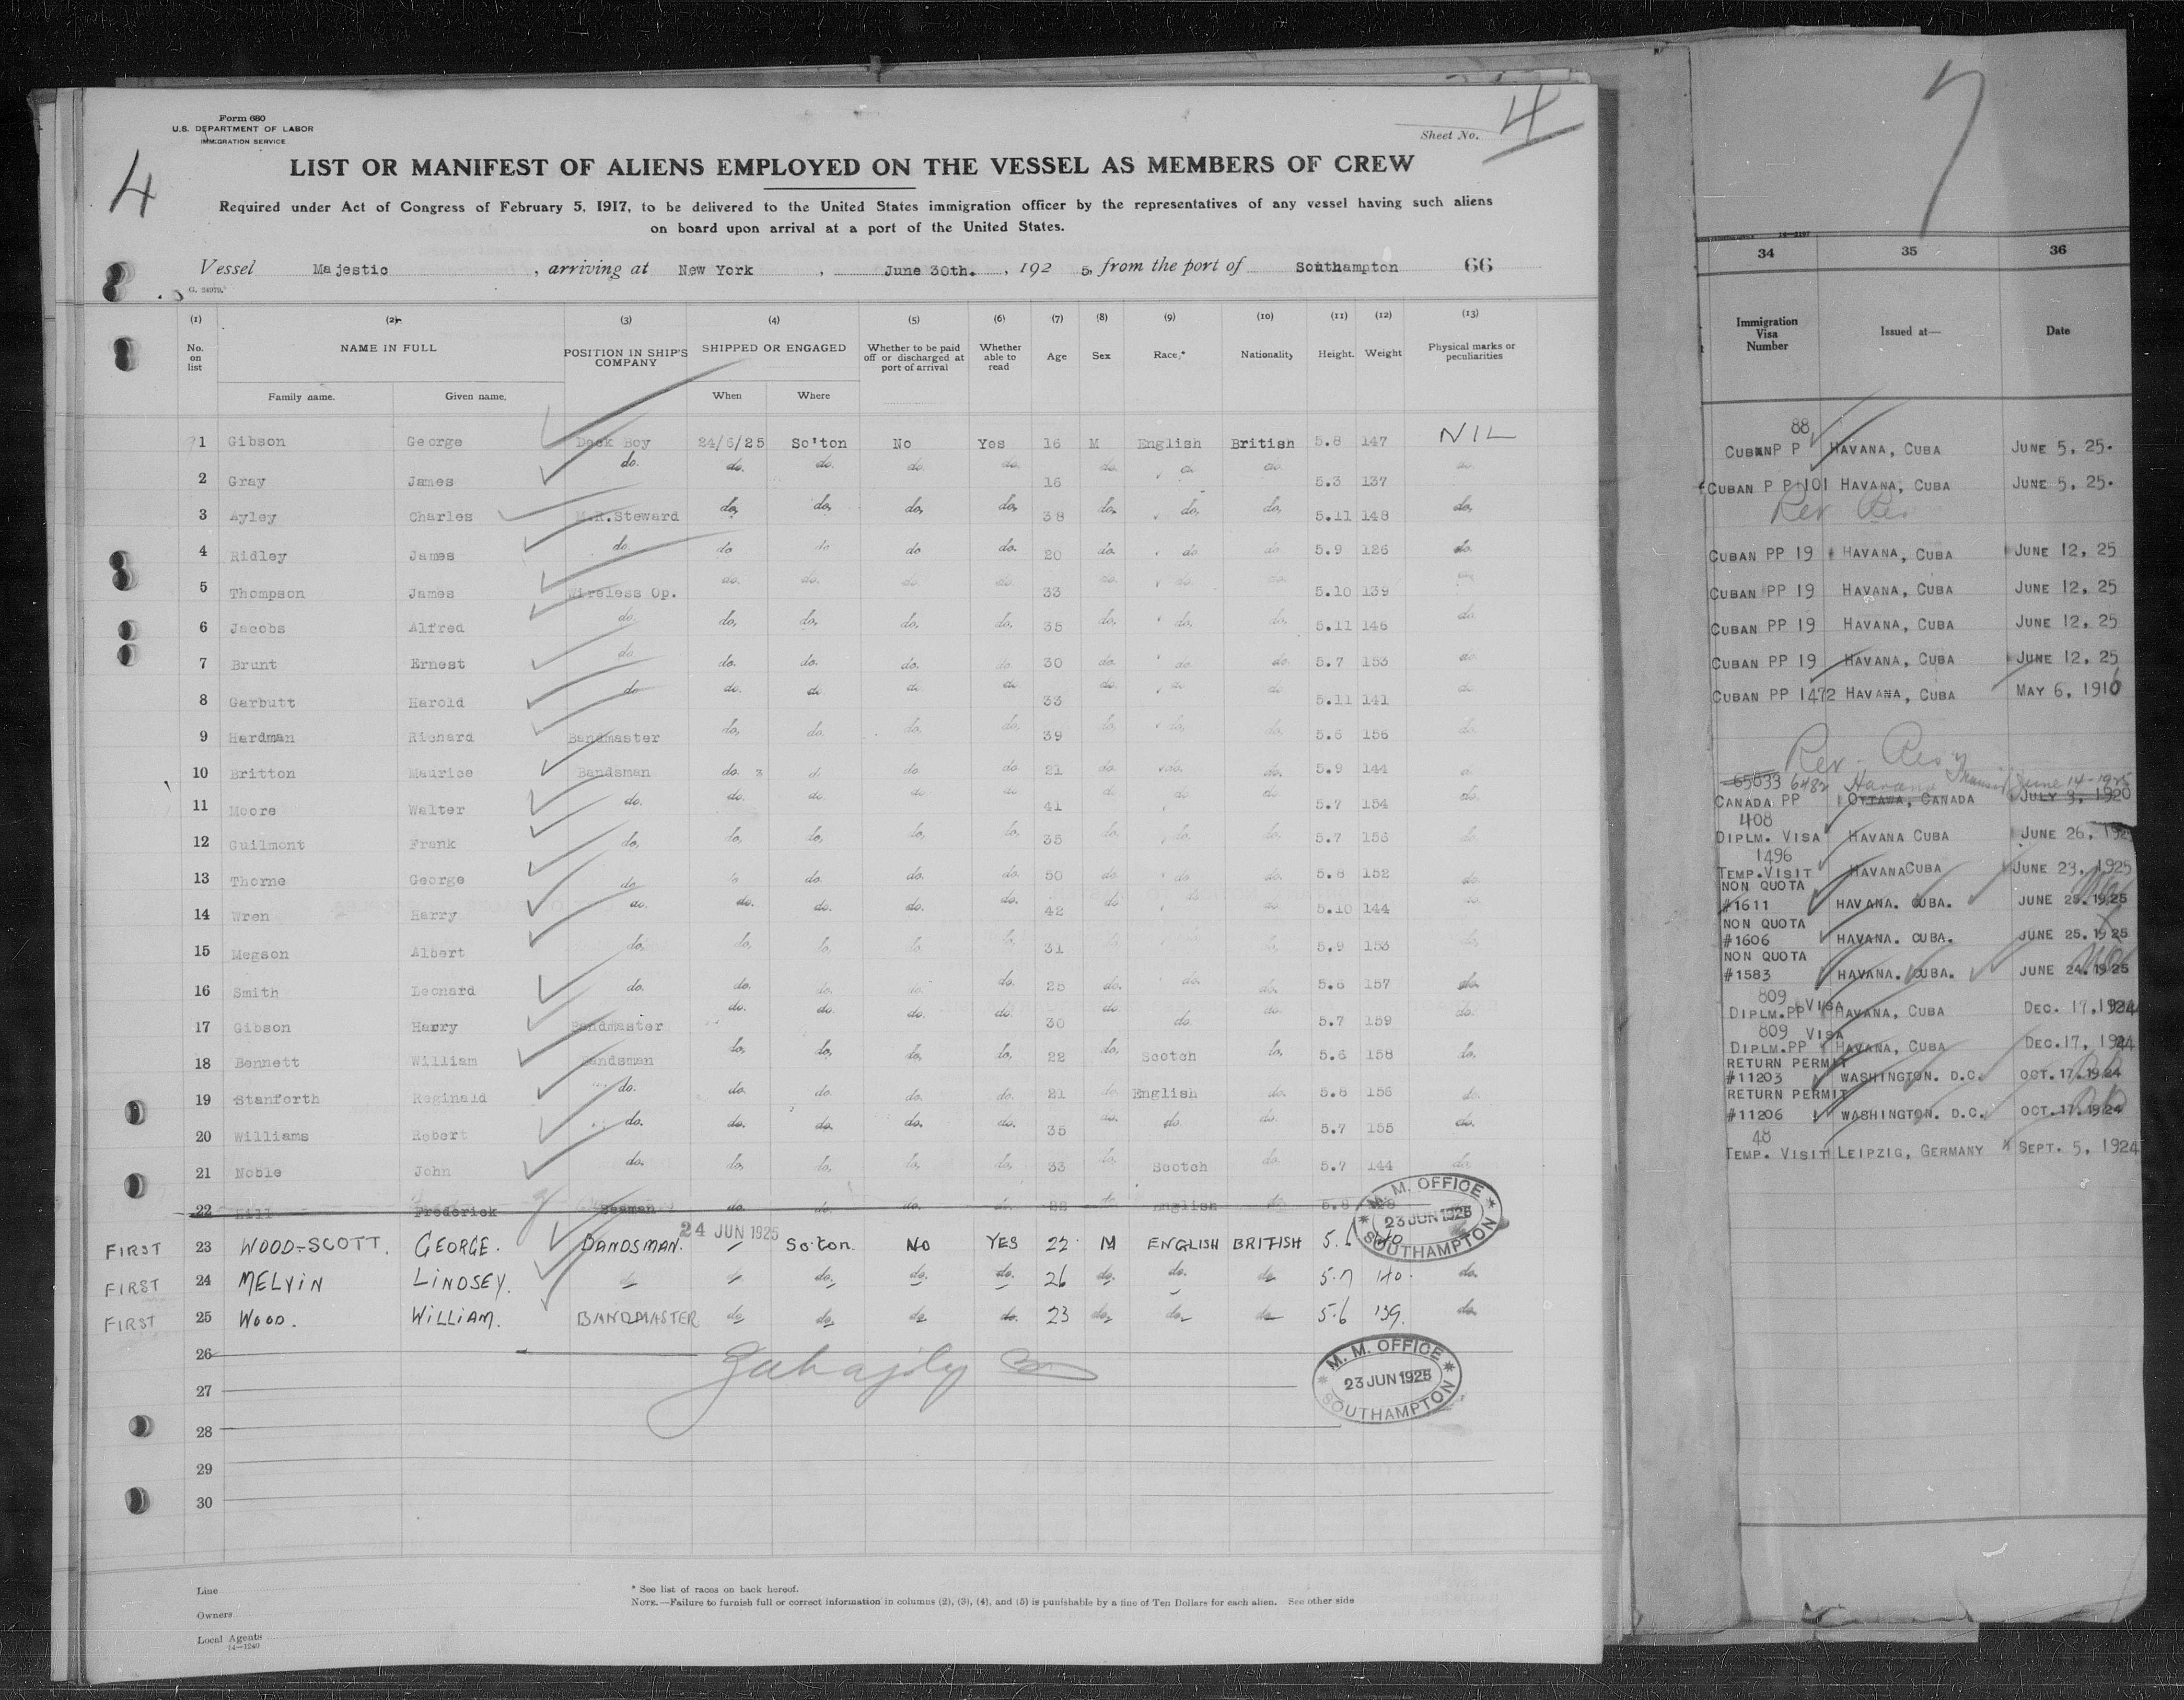 Form 680
U.S. DEPARTMENT OF LABOR
IMMIGRATION SERVICE
Sheet No. 4
4
LIST OR MANIFEST OF ALIENS EMPLOYED ON THE VESSEL AS MEMBERS OF CREW
Required under Act of Congress of February 5, 1917, to be delivered to the United States immigration officer by the representatives of any vessel having such aliens
on board upon arrival at a port of the United States.
Vessel Majestic , arriving at New York , June 30th. , 192 5, from the port of Southampton 66
G. 24979.
(1) (2) (3) (4) (5) (6) (7) (8) (9) (10) (11) (12) (13)
No. on list NAME IN FULL POSITION IN SHIP'S COMPANY SHIPPED OR ENGAGED Whether to be paid off or discharged at port of arrival Whether able to read Age Sex Race,* Nationality Height. Weight Physical marks or peculiarities
Family name. Given name. When Where
1 Gibson George Deck Boy 24/6/25 So'ton No Yes 16 M English British 5.8 147 NIL
2 Gray James do. do. do. do. do. 16 do. do. do. 5.3 137 do.
3 Ayley Charles M.R.Steward do. do. do. do. 38 do. do. do. 5.11 148 do.
4 Ridley James do. do do do do. 20 do. do do 5.9 126 do.
5 Thompson James Wireless Op. do. do. do. do. 33 do. do. do. 5.10 139
6 Jacobs Alfred do. do. do. do. do. 35 do. do. do. 5.11 146 do.
7 Brunt Ernest do. do. do. do. do. 30 do. do. do. 5.7 153 do.
8 Garbutt Harold do do. do. do do 33 do. do do 5.11 141 do.
9 Hardman Richard Bandmaster do. do. do. do. 39 do. do. do. 5.6 156 do.
10 Britton Maurice Bandsman do. do do 21 do. do. do. 5.9 144
11 Moore Walter do. do. do. do. do 41 do do do 5.7 154 do.
12 Guilmont Frank do. do. do. do. do. 35 do. do. do. 5.7 156 do.
13 Thorne George do do. do. do. 50 do. do do. 5.8 152 do.
14 Wren Harry do. do. do. do. do. 42 do. do do. 5.10 144 do.
15 Megson Albert do. do. do. do. do. 31 do. 5.9 153 do.
16 Smith Leonard do. do. do. do. 25 do. do. do. 5.6 157 do.
17 Gibson Harry Bandmaster do. do. do. do. 30 do. do. 5.7 159 do.
18 Bennett William Bandsman do. do. do. do. 22 do. Scotch do. 5.6 158 do.
19 Stanforth Reginald do. do. do. do. do. 21 do English do. 5.8 156 do.
20 Williams Robert do. do. do. do. do. 35 do. do do. 5.7 155 do.
21 Noble John do. do. do. do. do. 33 do. Scotch do. 5.7 144 do.
22 Hill Frederick Seaman do. do. do. do. 22 do English do 5.8
24 JUN 1925
FIRST 23 WOOD-SCOTT. GEORGE. BANDSMAN. So'ton. NO YES 22 M ENGLISH BRITISH 5.6 140
FIRST 24 MELVIN LINDSEY. do. do. do. 26 do. do. do 5.7 140. do.
FIRST 25 WOOD. WILLIAM. BANDMASTER do do do do. 23 do. do. do 5.6 139. do.
26
27
28
29
30
M. M. OFFICE
23 JUN 1925
SOUTHAMPTON
M. M. OFFICE
23 JUN 1925
SOUTHAMPTON
Line
Owners
Local Agents
14—1240
* See list of races on back hereof.
NOTE.—Failure to furnish full or correct information in columns (2), (3), (4), and (5) is punishable by a fine of Ten Dollars for each alien. See other side
7
34 35 36
Immigration Visa Number Issued at— Date
88
CUBAN P P HAVANA, CUBA JUNE 5, 25.
CUBAN P P 101 HAVANA, CUBA JUNE 5, 25.
Rev Res
CUBAN PP 19 HAVANA, CUBA JUNE 12, 25
CUBAN PP 19 HAVANA, CUBA JUNE 12, 25
CUBAN PP 19 HAVANA, CUBA JUNE 12, 25
CUBAN PP 19 HAVANA, CUBA JUNE 12, 25
CUBAN PP 1472 HAVANA, CUBA MAY 6, 1916
Rev. Res
65833 6482 Havana Transit June 14-1925
CANADA PP OTTAWA, CANADA JULY 9, 1920
408
DIPLM. VISA HAVANA CUBA JUNE 26, 1925
1496
TEMP. VISIT HAVANA CUBA JUNE 23, 1925
NON QUOTA
#1611 HAVANA. CUBA. JUNE 25. 1925
NON QUOTA
#1606 HAVANA. CUBA. JUNE 25. 1925
NON QUOTA
#1583 HAVANA. CUBA. JUNE 24. 1925
809 VISA
DIPLM.PP HAVANA, CUBA DEC. 17, 1924
809 VISA
DIPLM.PP HAVANA, CUBA DEC. 17, 1924
RETURN PERMIT
#11203 WASHINGTON. D.C. OCT. 17. 1924
RETURN PERMIT
#11206 WASHINGTON. D.C. OCT. 17. 1924
48
TEMP. VISIT LEIPZIG, GERMANY SEPT. 5, 1924